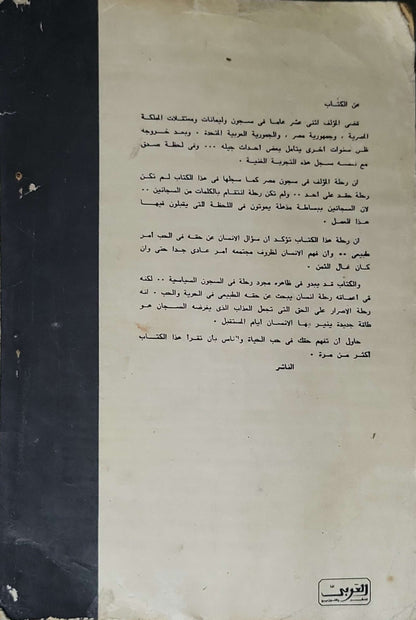 عن الكتاب
قضى المؤلف اثنى عشر عاما فى سجون وليمانات ومعتقلات المملكة
المصرية ، وجمهورية مصر ، والجمهورية العربية المتحدة . وبعد خروجه
ظل سنوات أخرى يتأمل بعض أحداث جيله ... وفى لحظة صدق
مع نفسه سجل هذه التجربة الغنية .
ان رحلة المؤلف فى سجون مصر كما سجلها فى هذا الكتاب لم تكن
رحلة حقد على أحد .. ولم تكن رحلة انتقام بالكلمات من السجانين ..
لأن السجانين ببساطة مذهلة يموتون فى اللحظة التى يقبلون فيها
هذا العمل .
ان رحلة هذا الكتاب تؤكد أن سؤال الانسان عن حقه فى الحب أمر
طبيعى .. وأن فهم الانسان لظروف مجتمعه أمر عادى جدا حتى وان
كان غال الثمن .
والكتاب قد يبدو فى ظاهره مجرد رحلة فى السجون السياسية .. لكنه
فى أعماقه رحلة انسان يبحث عن حقه الطبيعى فى الحرية والحب . انه
رحلة الاصرار على الحق التى تجعل العذاب الذى يفرضه السجان هو
طاقة جديدة ينير بها الانسان أيام المستقبل .
حاول أن تفهم حقك فى حب الحياة والناس بأن تقرأ هذا الكتاب
أكثر من مرة .
الناشر
العربى